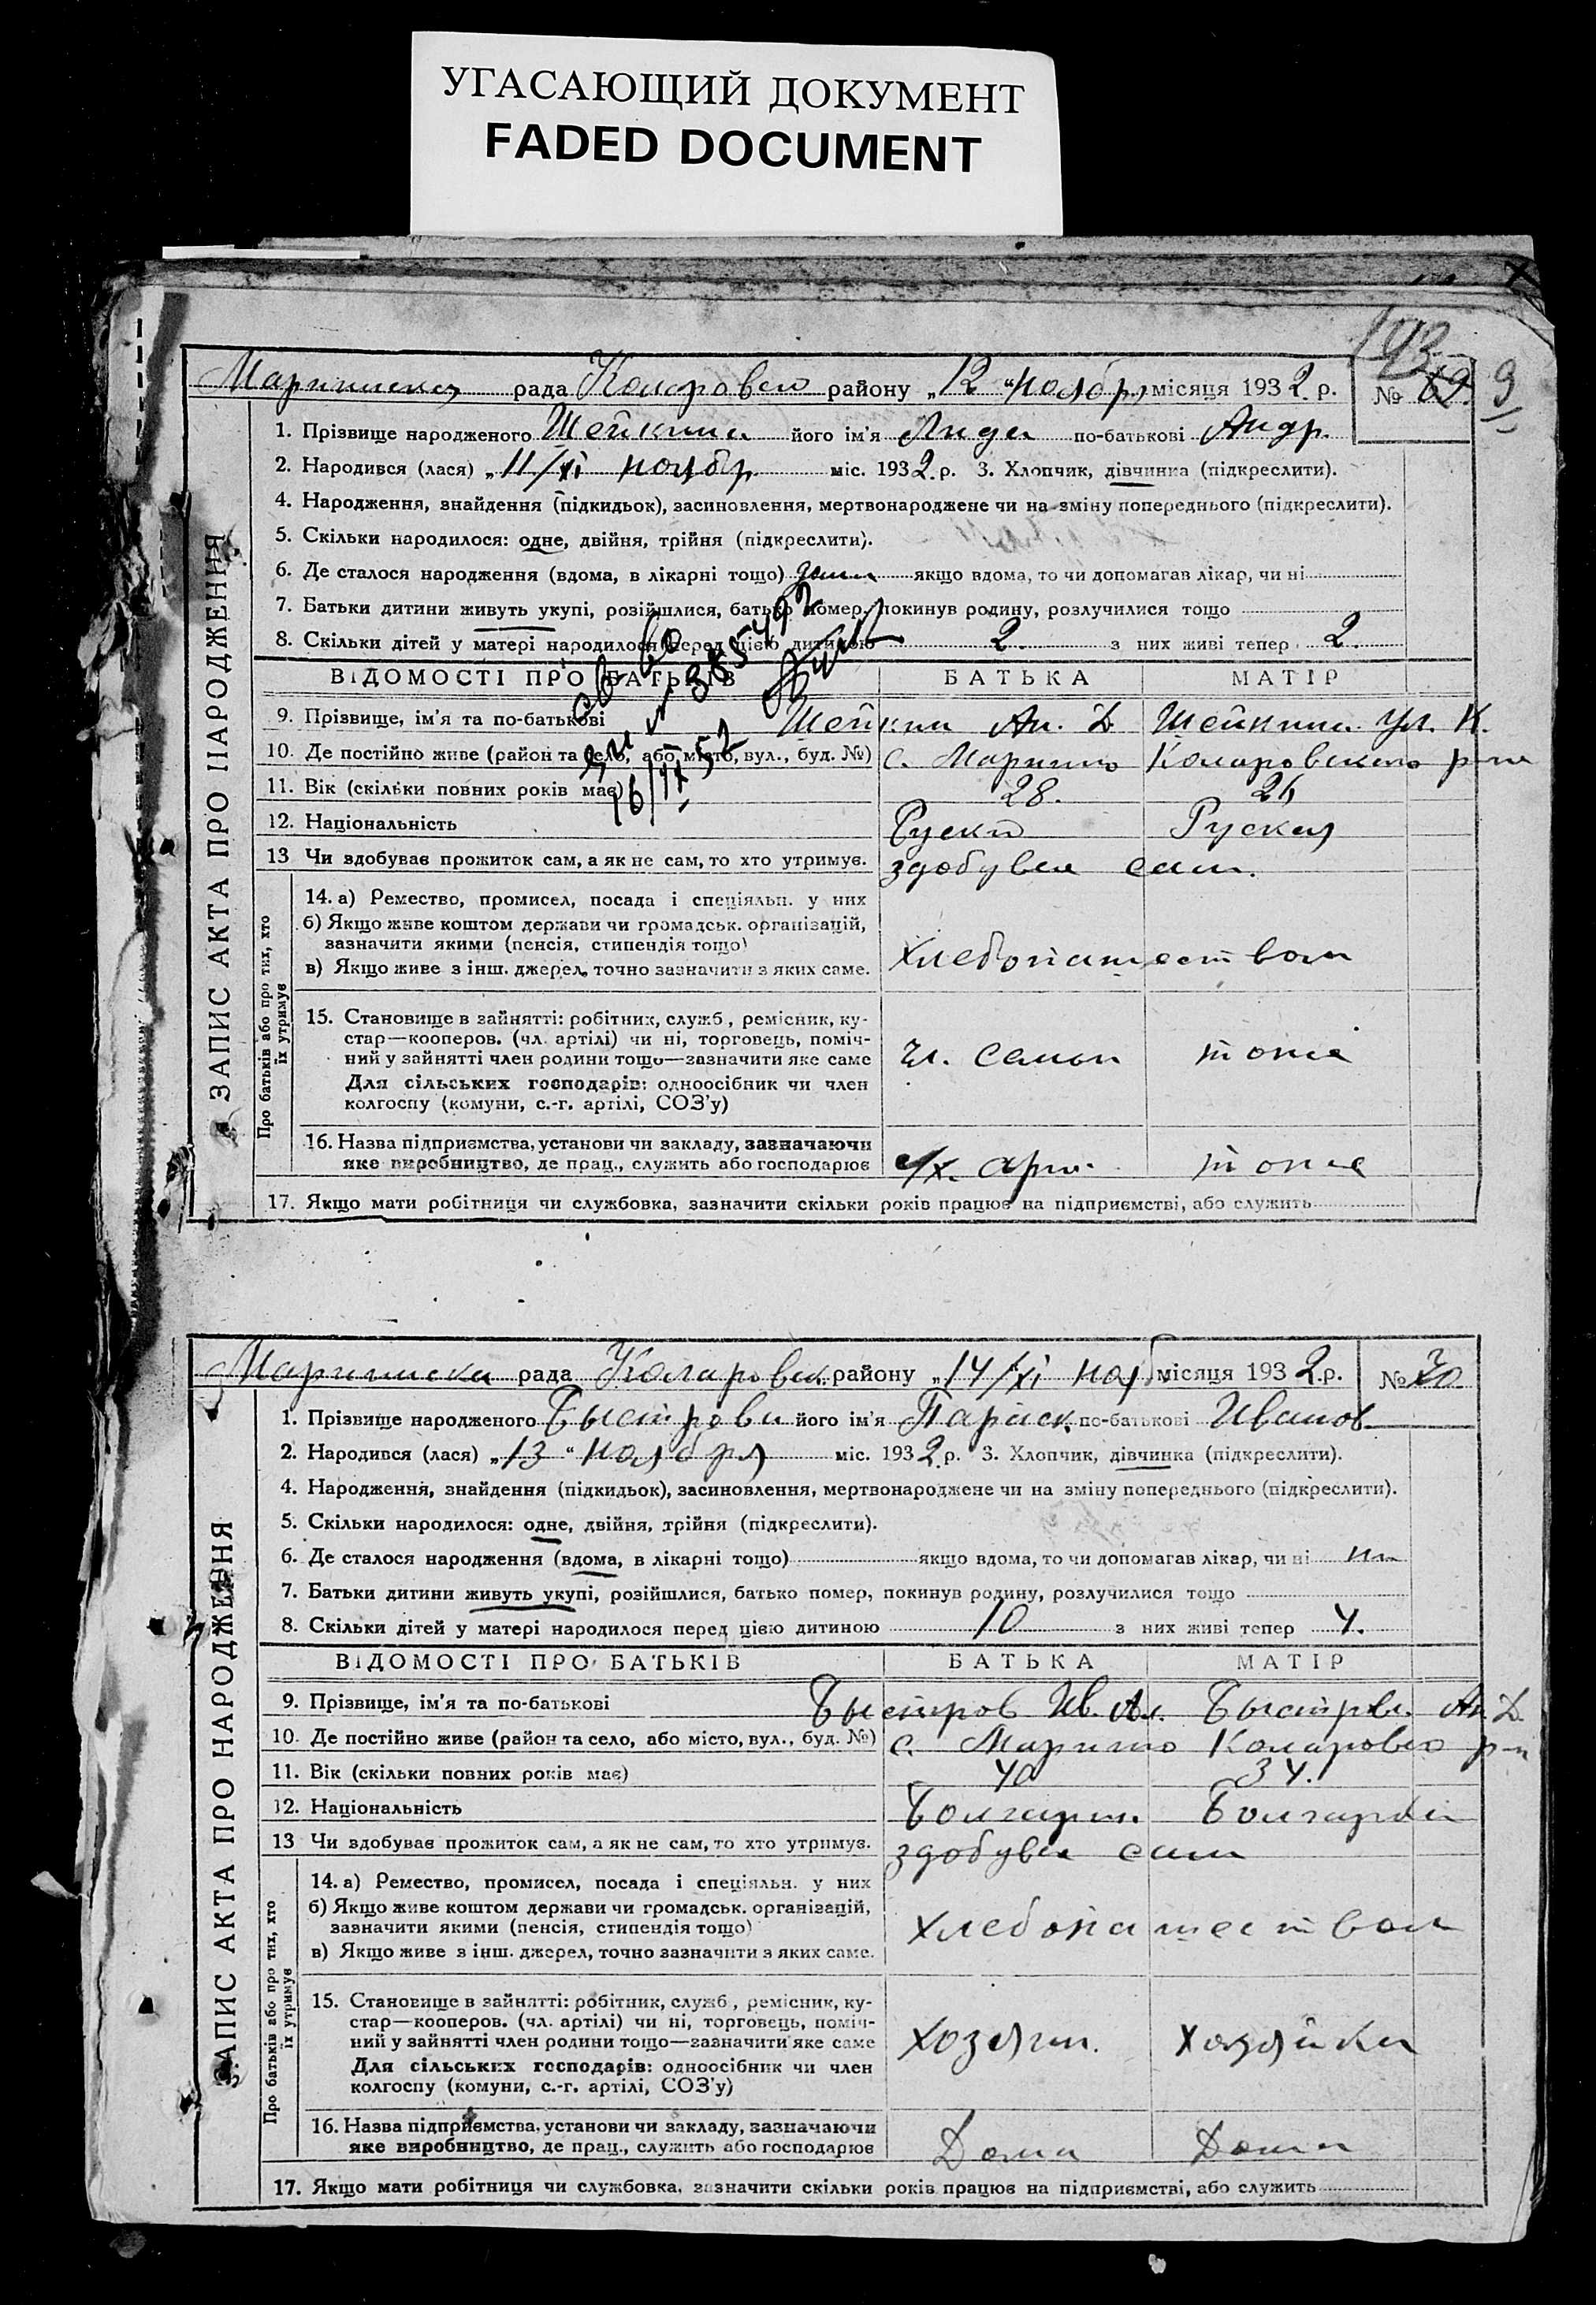 УГАСАЮЩИЙ ДОКУМЕНТ
FADED DOCUMENT
193
рада району „12“ ноября місяця 1932 р. № 69
9
1. Прізвище народженого Шейкина його ім'я Лида по-батькові Андр.
2. Народився (лася) „11/XI ноябр міс. 1932 р. 3. Хлопчик, дівчинка (підкреслити).
4. Народження, знайдення (підкидьок), засиновлення, мертвонароджене чи на зміну попереднього (підкреслити).
5. Скільки народилося: одне, двійня, трійня (підкреслити).
6. Де сталося народження (вдома, в лікарні тощо) дома якщо вдома, то чи допомагав лікар, чи ні
7. Батьки дитини живуть укупі, розійшлися, батько помер, покинув родину, розлучилися тощо
8. Скільки дітей у матері народилося перед цією дитиною 2. з них живі тепер 2.
св-во
№ 385492
16/IX 52
ЗАПИС АКТА ПРО НАРОДЖЕННЯ
ВІДОМОСТІ ПРО БАТЬКІВ БАТЬКА МАТІР
9. Прізвище, ім'я та по-батькові Шейкин Ан. Д Шейкина Ул. К.
10. Де постійно живе (район та село, або місто, вул., буд. №) с. Марино Коларовского р-на
11. Вік (скільки повних років має) 28. 26
12. Національність Руский Руская
13 Чи здобуває прожиток сам, а як не сам, то хто утримує. здобувае сам.
Про батьків або про тих, хто їх утримує
14. а) Ремество, промисел, посада і спеціяльн. у них
б) Якщо живе коштом держави чи громадськ. організацій,
зазначити якими (пенсія, стипендія тощо)
в) Якщо живе з інш. джерел, точно зазначити з яких саме. Хлебопашеством
15. Становище в зайнятті: робітник, служб., ремісник, ку-
стар—кооперов. (чл. артілі) чи ні, торговець, поміч-
ний у зайнятті член родини тощо—зазначити яке саме чл. семьи тоже
Для сільських господарів: одноосібник чи член
колгоспу (комуни, с.-г. артілі, СОЗ'у)
16. Назва підприємства, установи чи закладу, зазначаючи
яке виробництво, де прац., служить або господарює с/х. арт. тоже
17. Якщо мати робітниця чи службовка, зазначити скільки років працює на підприємстві, або служить
рада Коларовск. району „14/XI нояб місяця 1932 р. № 70
1. Прізвище народженого Быстрова його ім'я Параск. по-батькові Иванов
2. Народився (лася) „13“ ноября міс. 1932 р. 3. Хлопчик, дівчинка (підкреслити).
4. Народження, знайдення (підкидьок), засиновлення, мертвонароджене чи на зміну попереднього (підкреслити).
5. Скільки народилося: одне, двійня, трійня (підкреслити).
6. Де сталося народження (вдома, в лікарні тощо) якщо вдома, то чи допомагав лікар, чи ні
7. Батьки дитини живуть укупі, розійшлися, батько помер, покинув родину, розлучилися тощо
8. Скільки дітей у матері народилося перед цією дитиною 10 з них живі тепер 4.
ЗАПИС АКТА ПРО НАРОДЖЕННЯ
ВІДОМОСТІ ПРО БАТЬКІВ БАТЬКА МАТІР
9. Прізвище, ім'я та по-батькові Быстров Ив. Ал. Быстров. Ан. Д.
10. Де постійно живе (район та село, або місто, вул., буд. №) с. Марино Коларовско р-н
11. Вік (скільки повних років має) 40 34.
12. Національність Болгарин. Болгарка
13 Чи здобуває прожиток сам, а як не сам, то хто утримує. здобувае сам
Про батьків або про тих, хто їх утримує
14. а) Ремество, промисел, посада і спеціяльн. у них
б) Якщо живе коштом держави чи громадськ. організацій,
зазначити якими (пенсія, стипендія тощо)
в) Якщо живе з інш. джерел, точно зазначити з яких саме. хлебопашеством
15. Становище в зайнятті: робітник, служб., ремісник, ку-
стар—кооперов. (чл. артілі) чи ні, торговець, поміч-
ний у зайнятті член родини тощо—зазначити яке саме хозяин. хозяйка
Для сільських господарів: одноосібник чи член
колгоспу (комуни, с.-г. артілі, СОЗ'у)
16. Назва підприємства, установи чи закладу, зазначаючи
яке виробництво, де прац., служить або господарює Дома Дома
17. Якщо мати робітниця чи службовка, зазначити скільки років працює на підприємстві, або служить